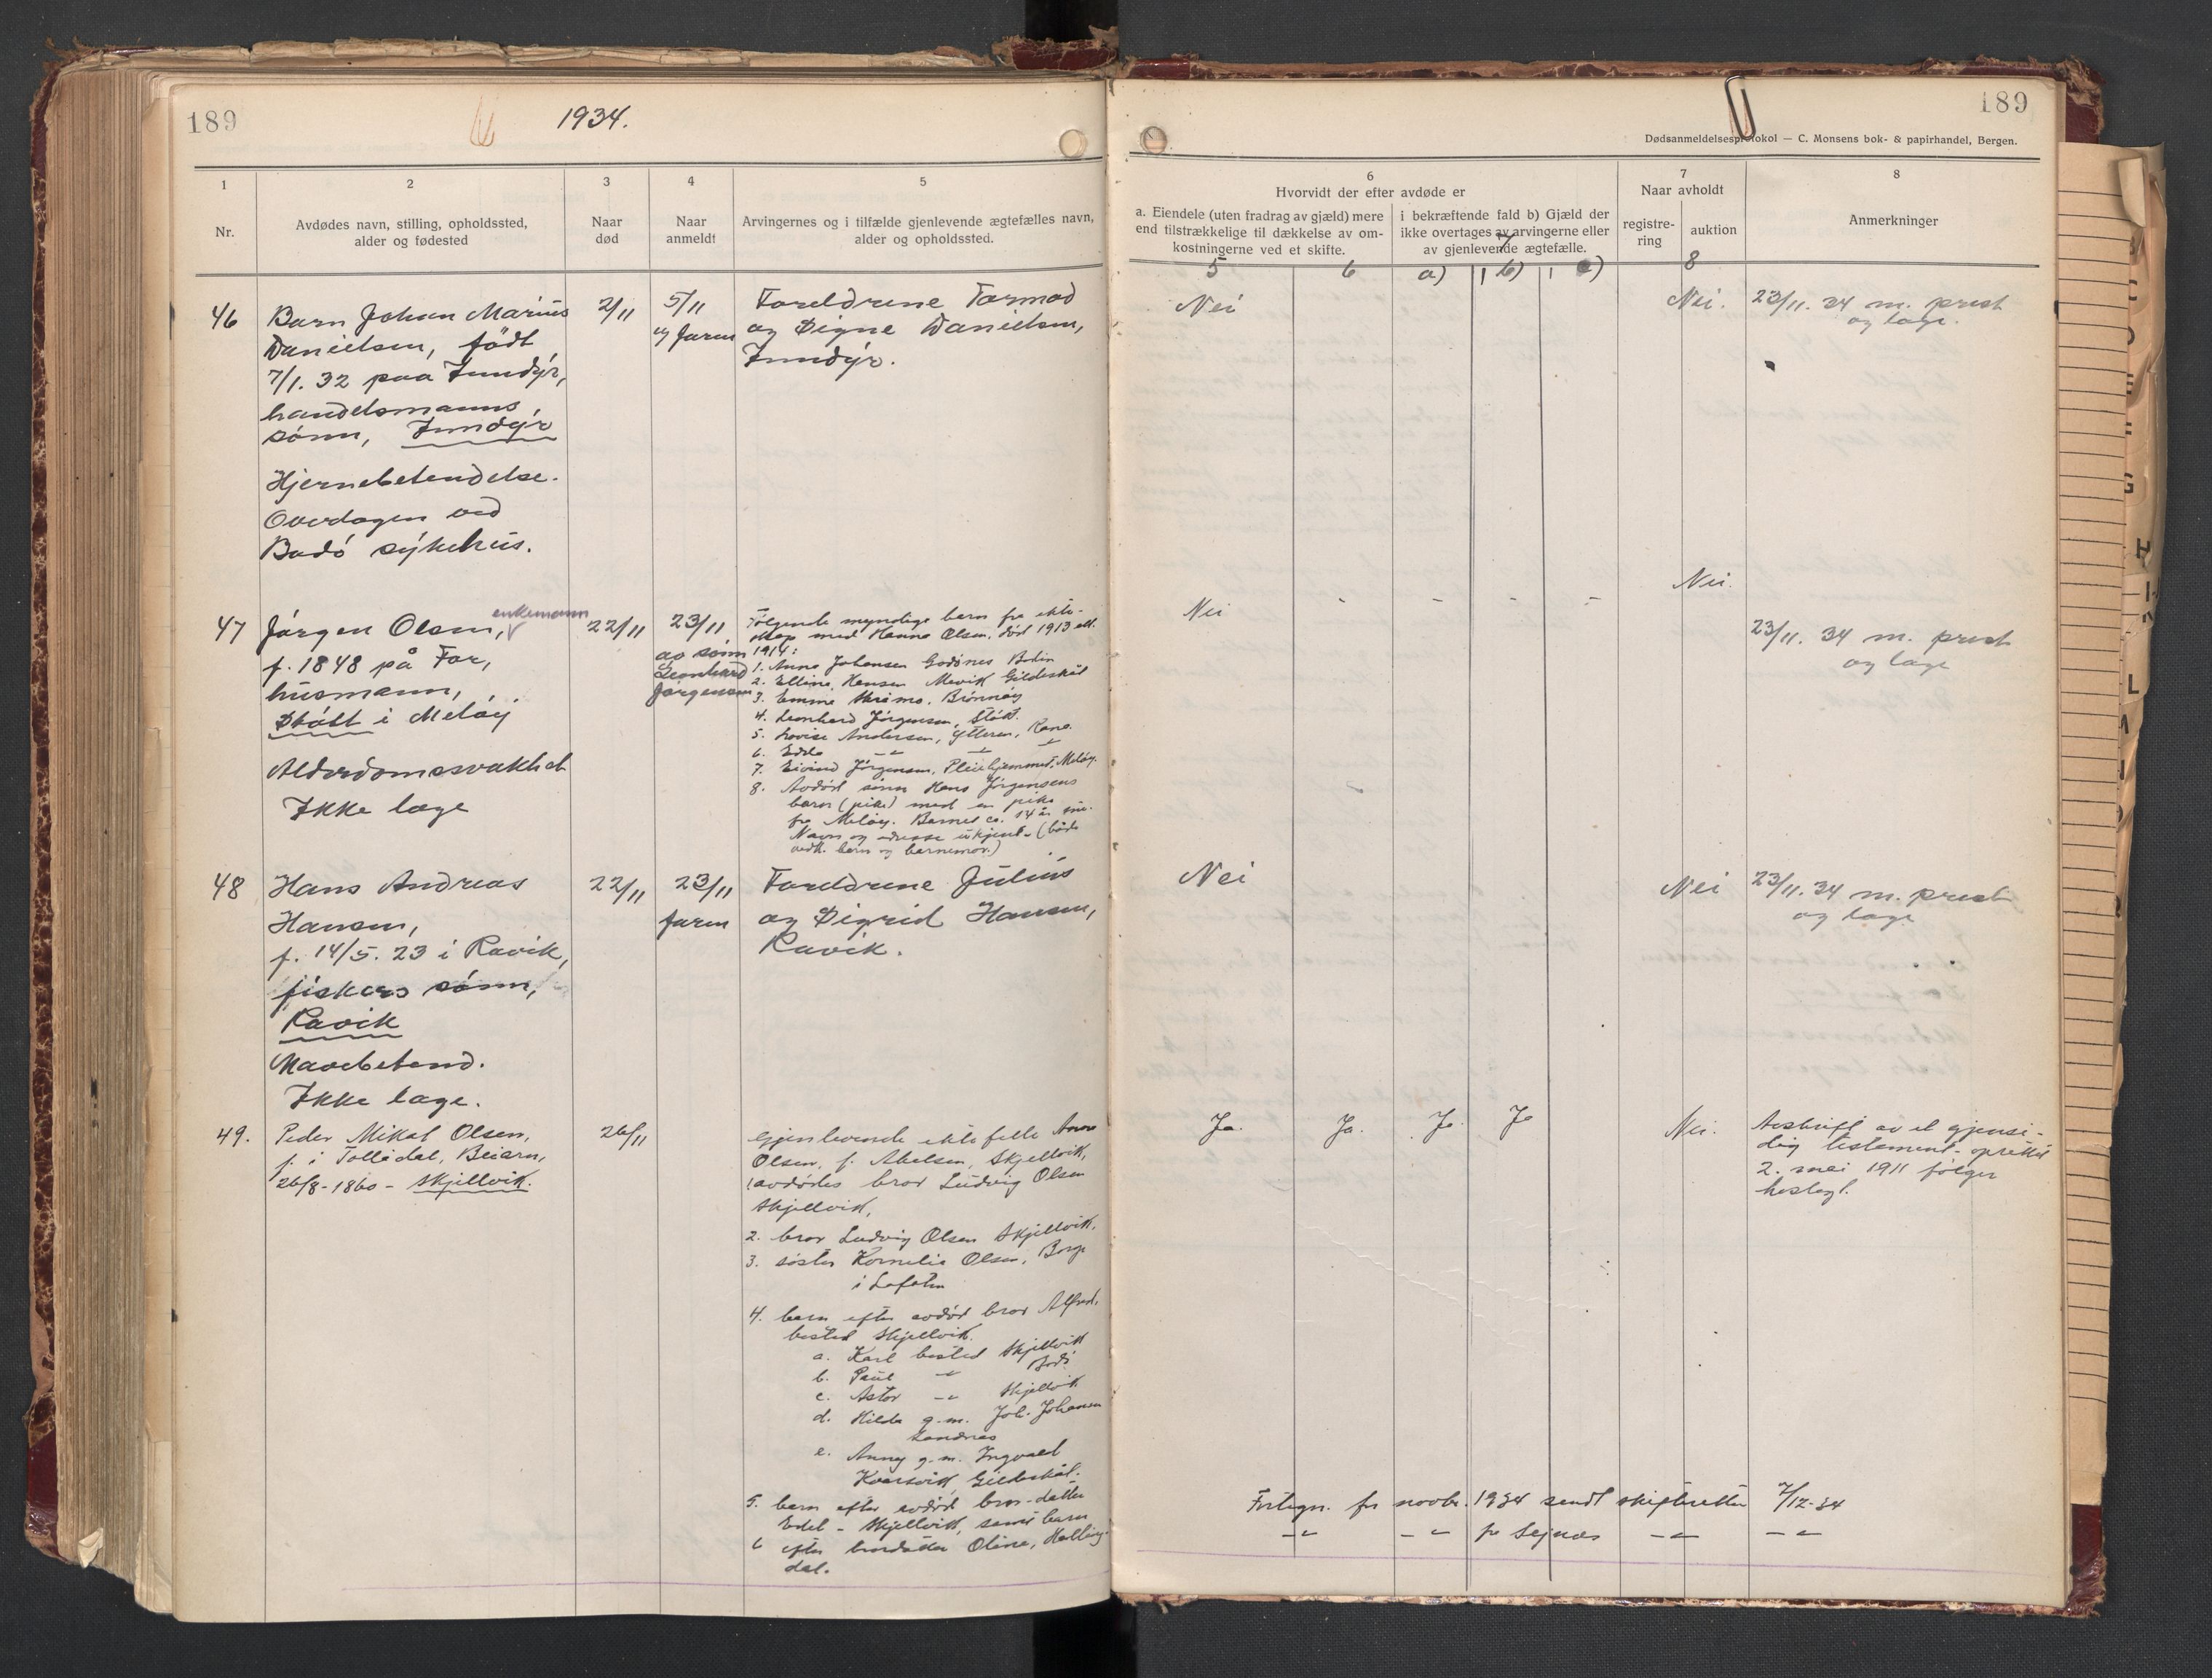 189
1934.
1
2
3
4
5
Nr.
Avdødes navn, stilling, opholdssted,
alder og fødested
Naar
død
Naar
anmeldt
Arvingernes og i tilfælde gjenlevende ægtefælles navn,
alder og opholdssted.
46
Barn Johan Marius
Danielsen, født
7/1. 32 paa Inndyr,
handelsmanns
sønn, Inndyr
Hjernebetendelse.
Overlægen ved
Bodø sykehus.
2/11
5/11
av faren
Foreldrene Tormod
og Signe Danielsen,
Inndyr.
47
Jørgen Olsen, enkemann
f. 1848 på For,
husmann,
Støtt i Meløy
Alderdomssvakhet
Ikke læge
22/11
23/11
av sønn
Leonhard
Jørgensen
Følgende myndige barn fra ekte-
skap med Hanna Olsen, død 1913 ell.
1914:
1. Anna Johansen Godønes Bodin
2. Elline Hansen Mevik Gildeskål
3. Emma Brønnøy
4. Leonhard Jørgensen, Støtt.
5. Lovise Andersen, Ytteren, Rana.
6. Edda -"- -"- -"-
7. Eivind Jørgensen, Pleiehjemmet, Meløy.
8. Avdød sønn Hans Jørgensens
barn (pike) med en pike
fra Meløy. Barnet ca. 14 år
Navn og adresse ukjent. (både
vedk. barn og barnemor.)
48
Hans Andreas
Hansen,
f. 14/5. 23 i Ravik,
fiskers sønn,
Ravik
Mavebetend.
Ikke læge.
22/11
23/11
faren
Foreldrene Julius
og Sigrid Hansen,
Ravik.
49.
Peder Mikal Olsen,
f. i Tollådal, Beiarn,
26/8-1860 - Skjellvik.
26/11
Gjenlevende ektefelle Anna
Olsen, f. Abelsen, Skjellvik,
1 avdødes bror Ludvig Olsen
Skjellvik,
2. bror Ludvig Olsen Skjellvik.
3. søster Kornelia Olsen, Borge
i Lofoten
4. barn efter avdød bror Alfred,
bosted Skjellvik.
a. Karl bosted Skjellvik
b. Paul -"- Bodø
c. Astor -"- Skjellvik
d. Hilda g.m. Joh. Johansen
Sandnes
e. Anny g.m. Ingvald
Kvarsvik, Gildeskål.
5. barn efter avdød bror-datter
Edel - Skjellvik, samt barn
6 efter brordatter Oline, Halling-
dal.
189
Dødsanmeldelsesprotokol — C. Monsens bok- & papirhandel, Bergen.
6
Hvorvidt der efter avdøde er
a. Eiendele (uten fradrag av gjæld) mere
end tilstrækkelige til dækkelse av om-
kostningerne ved et skifte.
i bekræftende fald b) Gjæld der
ikke overtages av arvingerne eller
av gjenlevende ægtefælle.
7
Naar avholdt
registre-
ring
auktion
8
Anmerkninger
5
6
7
a)
b)
c)
8
Nei
Nei.
23/11. 34 m. prest
og læge.
Nei
-
-
-
-
Nei.
23/11. 34 m. prest
og læge
Nei
Nei
23/11. 34 m. prest
og læge
Ja.
Ja.
Ja
Ja
Nei.
Avskrift av et gjensi-
dig testament oprettet
2. mai 1911 følger
hoslagt.
Fortegn. for novbr. 1934 sendt skifteretten 7/12-34
-"- -"- pr Seines -"- -"-